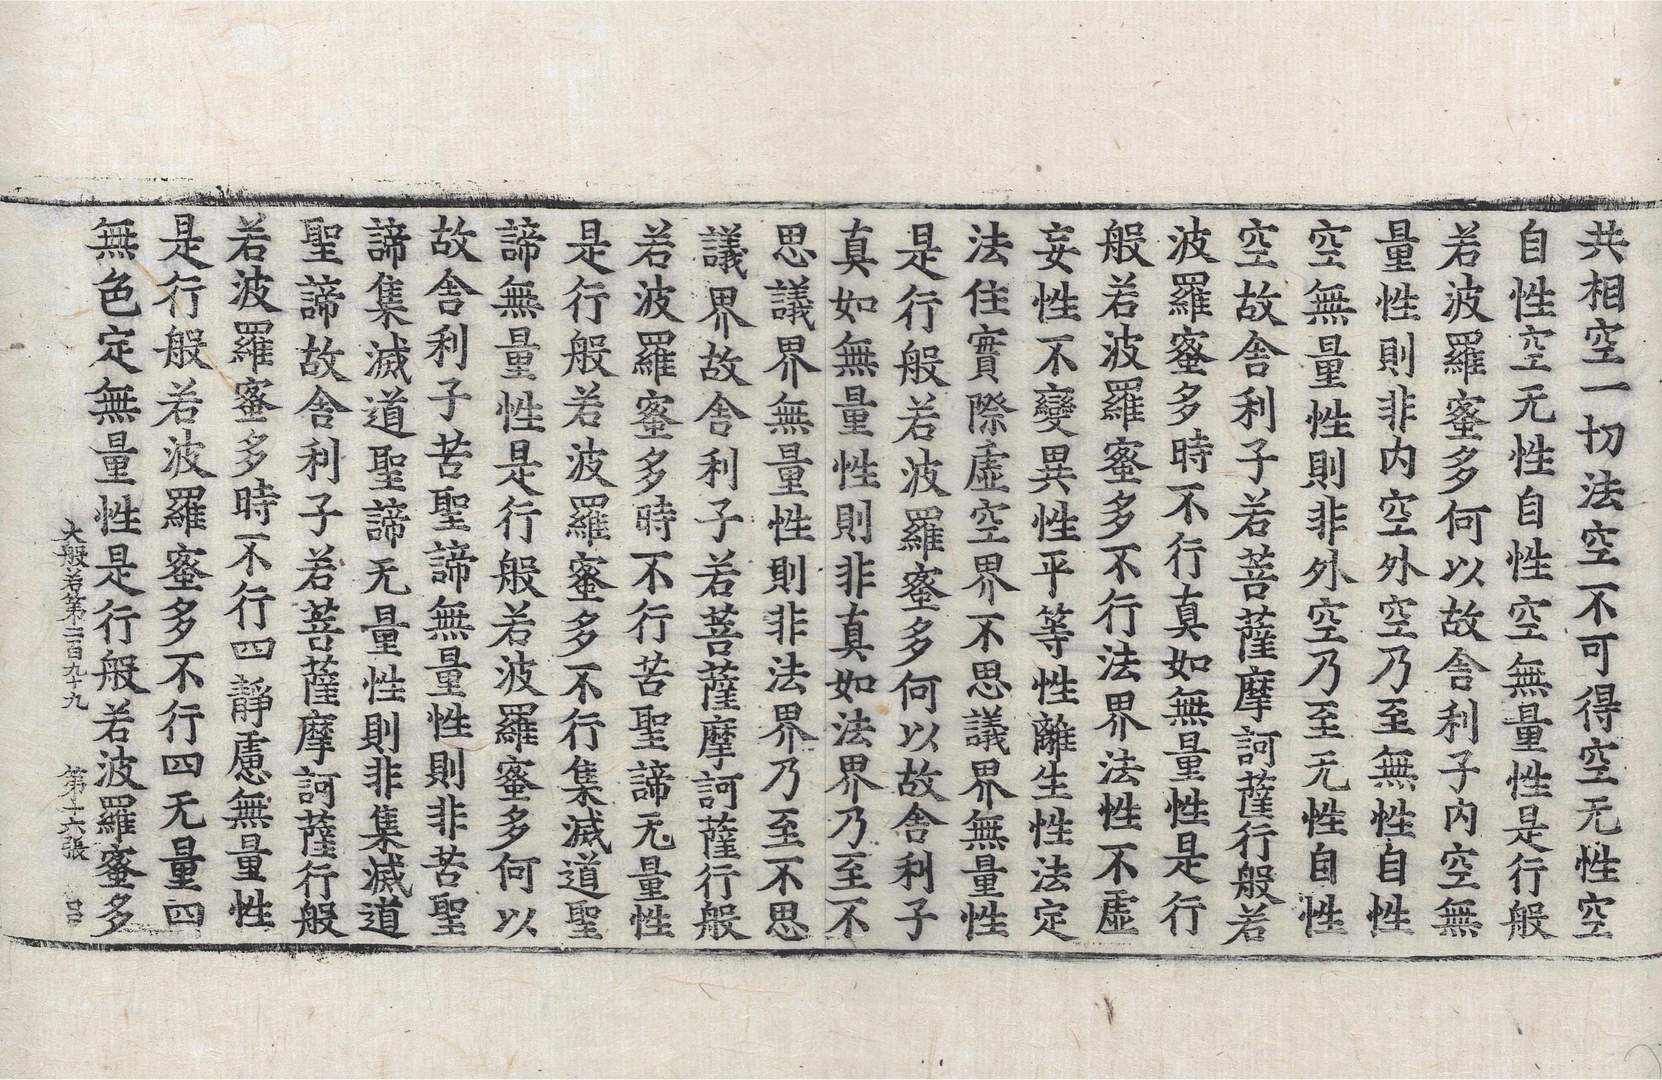 共相空一切法空不可得空无性空
自性空无性自性空無量性是行般
若波羅蜜多何以故舍利子内空無
量性則非内空外空乃至無性自性
空無量性則非外空乃至无性自性
空故舍利子若菩薩摩訶薩行般若
波羅蜜多時不行真如無量性是行
般若波羅蜜多不行法界法性不虛
妄性不變異性平等性離生性法定
法住實際虛空界不思議界無量性
是行般若波羅蜜多何以故舍利子
真如無量性則非真如法界乃至不
思議界無量性則非法界乃至不思
議界故舍利子若菩薩摩訶薩行般
若波羅蜜多時不行苦聖諦无量性
是行般若波羅蜜多不行集滅道聖
諦無量性是行般若波羅蜜多何以
故舍利子苦聖諦無量性則非苦聖
諦集滅道聖諦无量性則非集滅道
聖諦故舍利子若菩薩摩訶薩行般
若波羅蜜多時不行四靜慮無量性
是行般若波羅蜜多不行四无量四
無色定無量性是行般若波羅蜜多
大般若第二百九十九 第十六張